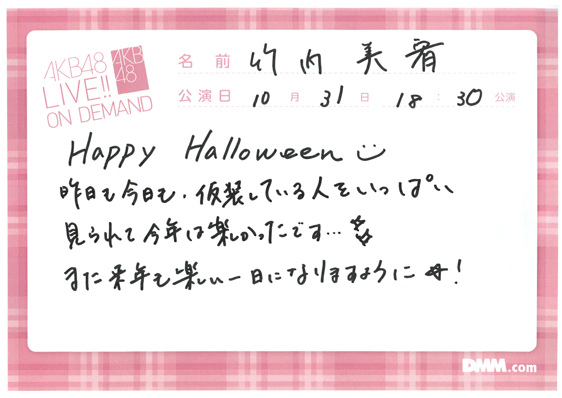 AKB48
LIVE!!
ON DEMAND
AKB
48
名前 竹内美宥
公演日 10月31日 18:30公演
Happy Halloween
昨日も今日も、仮装している人をいっぱい
見られて今年は楽しかったです…
また来年も楽しい一日になりますように☆!
DMM.com